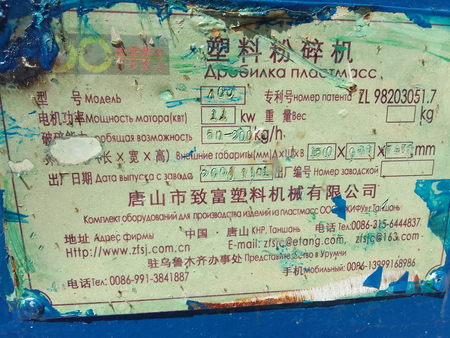 塑料粉碎机
Дробилка пластмасс
型 号 Модель 400 专利号Номер патента ZL 98203051.7
电机功率Мощность мотора(квт) kw 重量Вес kg
дробящая возможность kg/h
长 × 宽 × 高) Внешние габариты(ММДхШхВ mm
出厂日期 Дата выпуска с завода 出厂编号 Номер заводской
唐山市致富塑料机械有限公司
Комплект оборудований для производства изделий из пластмасс ООО «ЖИФУ»г. Таншань
地址 Адрес фирмы 中国·唐山 КНР, Таншань 电话 Тел: 0086-315-6444837
Http://www.zfsj.com.cn E-mail: zfsjc@etang.com, zfsjc@163.com
驻乌鲁木齐办事处 Представительство в Урумчи
电话Тел: 0086-991-3841887 手机Мобильный: 0086-13999168986